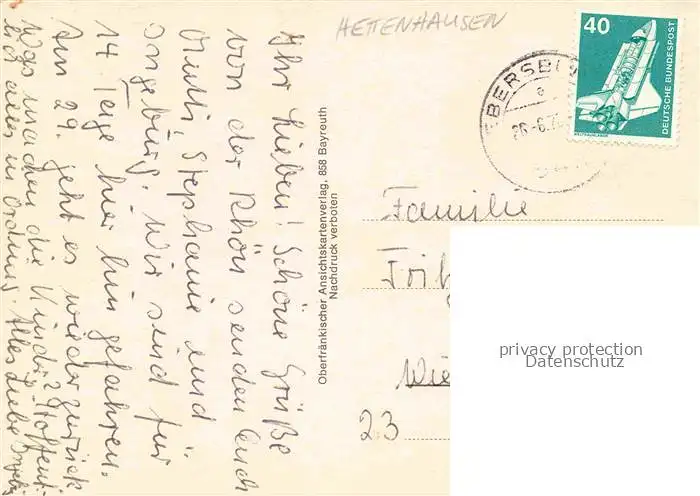 HETTENHAUSEN
40
DEUTSCHE BUNDESPOST
EBERSBU
26.-6.7
Ihr Lieben! Schöne Grüße
von der Rhön senden Euch
Mutti, Stephanie und
Ingeburg. Wir sind für
14 Tage hier hin gefahren.
Am 29. geht es wieder zurück
Was machen die Kinder? Hoffent-
lich alles in Ordnung. Alles Liebe
Oberfränkischer Ansichtskartenverlag, 858 Bayreuth
Nachdruck verboten
Familie
Frit
Wie
23
privacy protection
Datenschutz